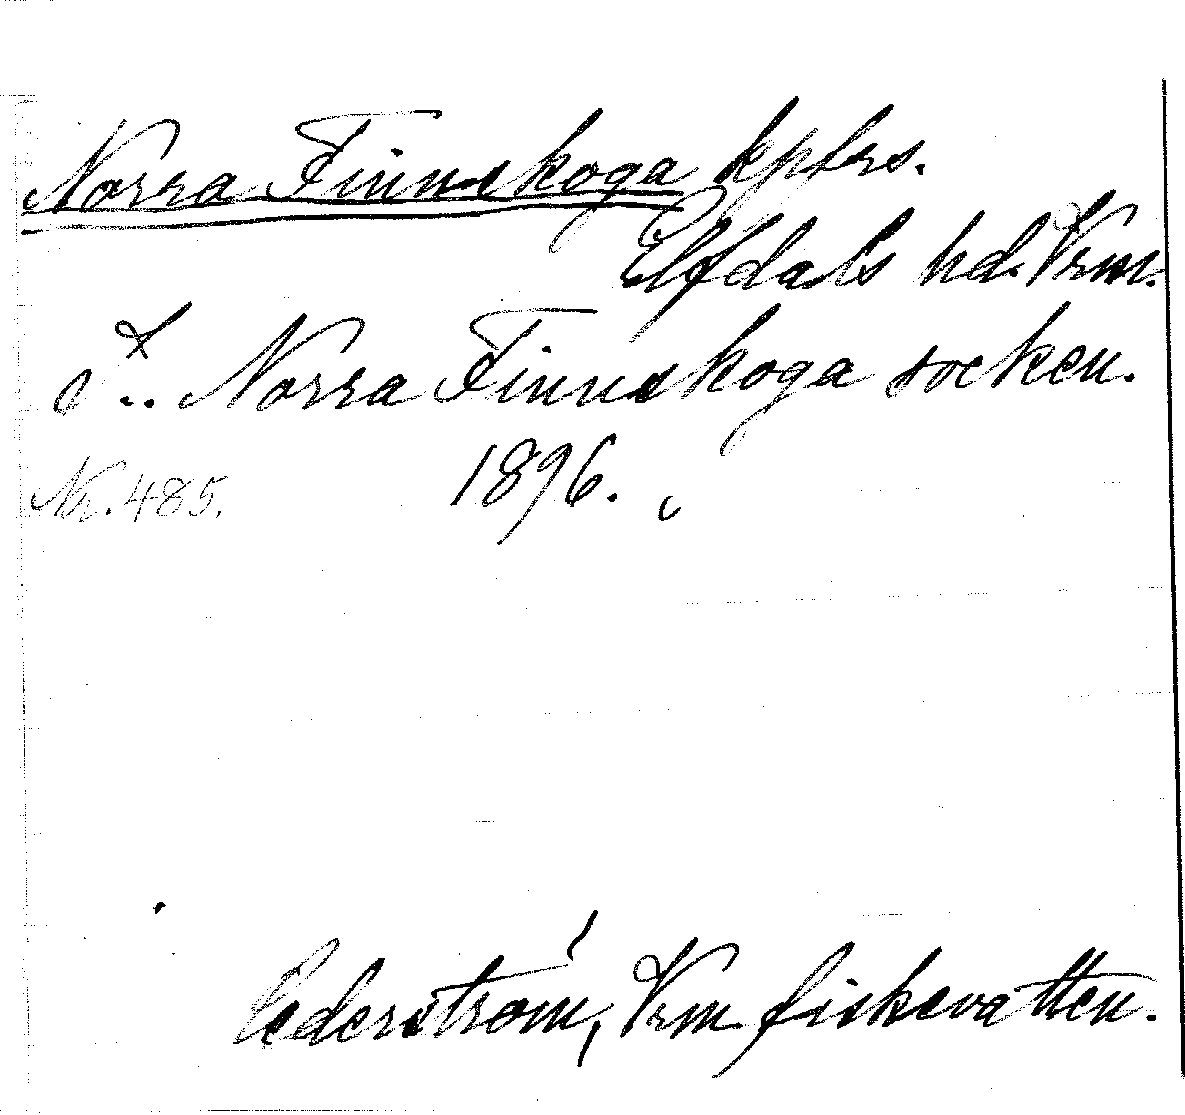 Norra Finnskoga kpfrs.
Elfdals hd. Vrm.
Norra Finnskoga socken.
1896.
Nr. 485.
Cederström, Vrm fiskevatten.